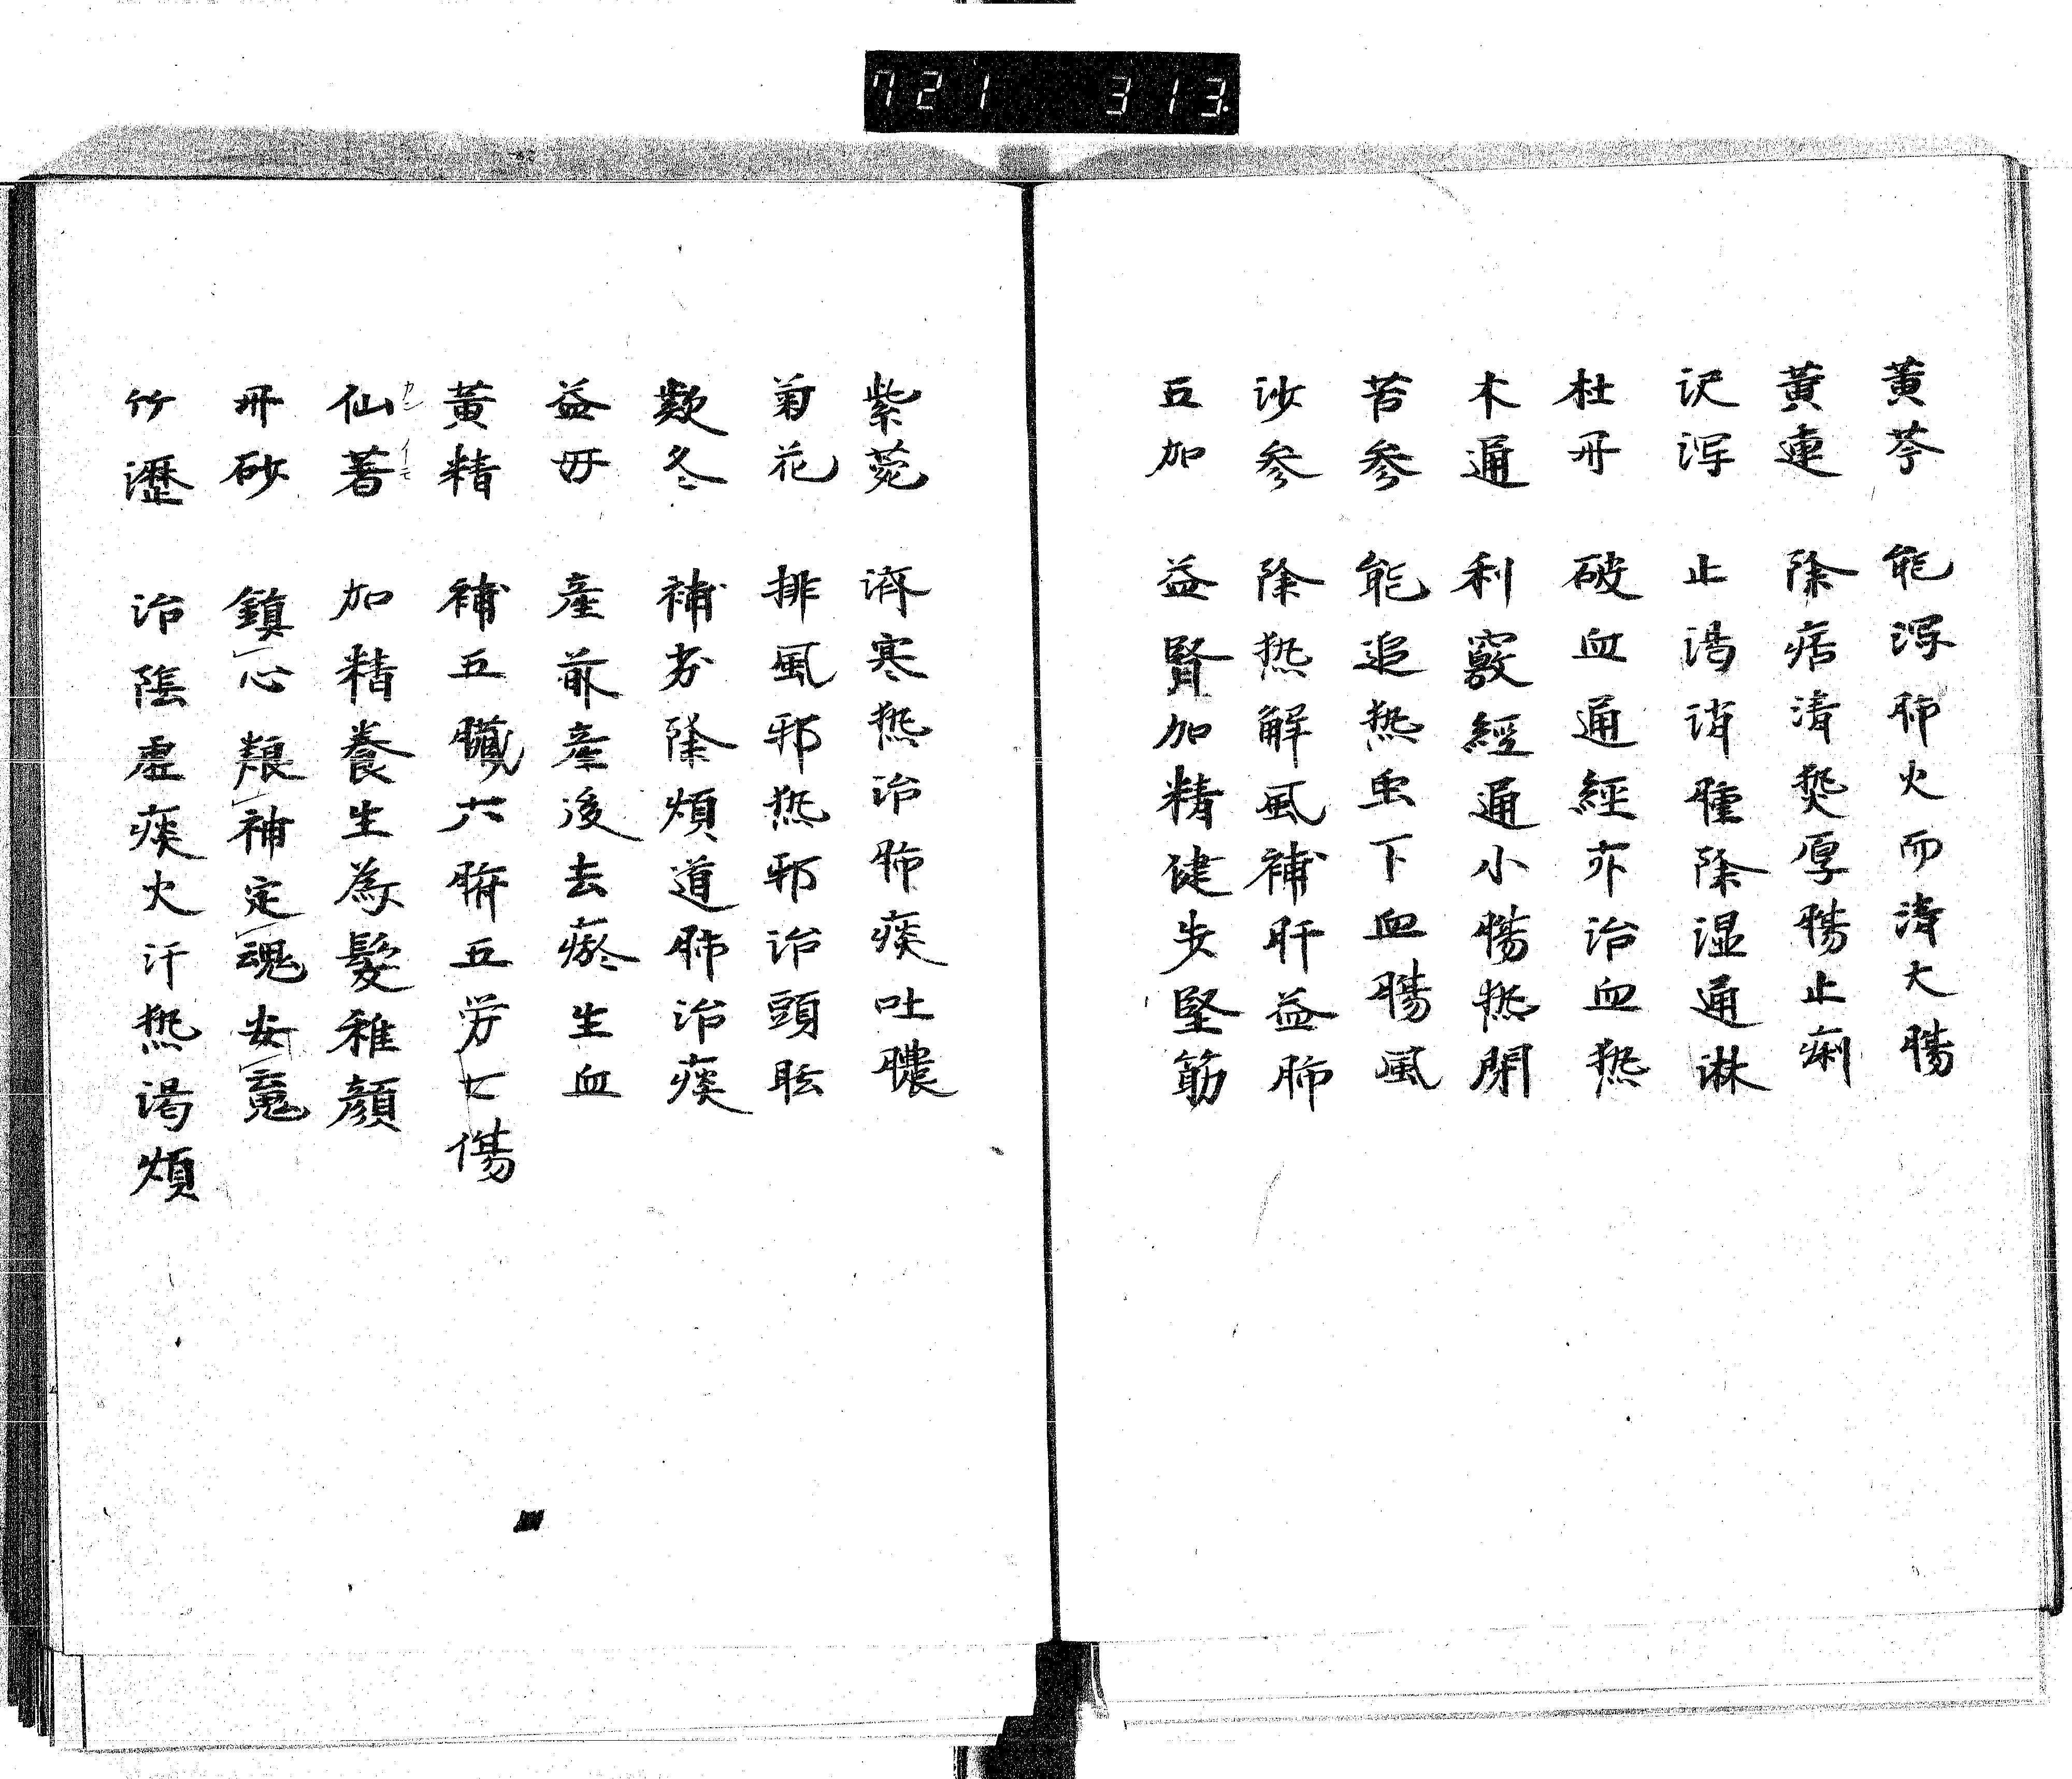 721 313
黄芩 能泻肺火而清大腸
黄連 除痞清熱厚腸止痢
沢泻 止渇消腫除湿通淋
杜丹 破血通經亦治血熱
木通 利竅經通小腸熱閉
苦参 能追熱虫下血腸風
沙参 除熱解風補肝益肺
五加 益腎加精健歩堅筋
紫菀 済寒熱治肺痰吐膿
菊花 排風邪熱邪治頭眩
款冬 補劳除煩道肺治痰
益母 産前産後去瘀生血
黄精 補五臓六腑五労七傷
仙著 加精養生為髪稚顔
丹砂 鎮心 補定魂安魄
竹瀝 治陰虚痰火汗熱渇煩